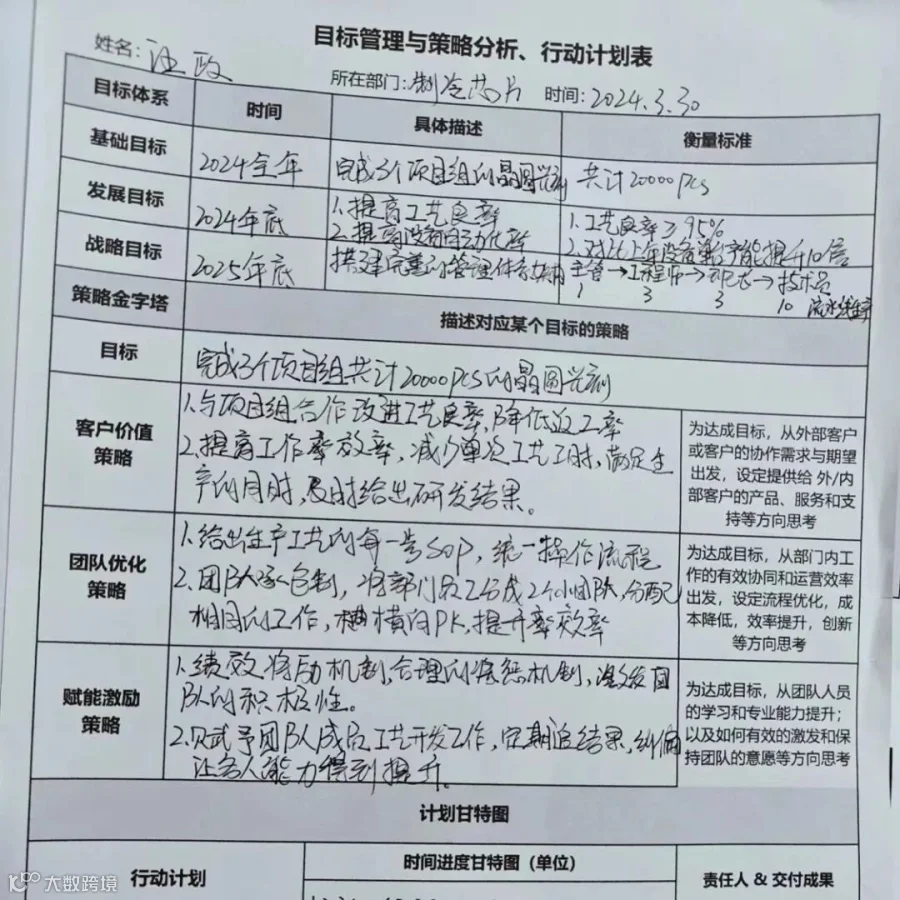 目标管理与策略分析、行动计划表
姓名: 汪政 所在部门: 制冷芯片 时间: 2024.3.30
目标体系 时间 具体描述 衡量标准
基础目标 2024全年 完成3个项目组的晶圆光刻 共计20000pcs
发展目标 2024年底 1.提高工艺良率 1.工艺良率≥95%
2.提高设备自动化率 2.对比上年设备产能提升10倍
战略目标 2025年底 搭建完善的管理体系 主管→工程师→→技术员
1 3 3 10 流水线生产
策略金字塔 描述对应某个目标的策略
目标 完成3个项目组共计20000pcs的晶圆光刻
客户价值
策略
1.与项目组合作改进工艺良率,降低返工率
2.提高工作率效率,减少单次工艺工时,满足生
产的同时,及时给出研发结果。
为达成目标，从外部客户
或客户的协作需求与期望
出发，设定提供给 外/内
部客户的产品、服务和支
持等方向思考
团队优化
策略
1.给出生产工艺的每一步SOP,统一操作流程
2.团队承包制,将部门员工分成2个小团队,分配
相同的工作,横向PK,提升率效率
为达成目标，从部门内工
作的有效协同和运营效率
出发，设定流程优化，成
本降低，效率提升，创新
等方向思考
赋能激励
策略
1.绩效奖励机制,合理的奖惩机制,激发团
队的积极性。
2.赋予团队成员工艺开发工作,定期追结果,纠偏
让各人能力得到提升。
为达成目标，从团队人员
的学习和专业能力提升；
以及如何有效的激发和保
持团队的意愿等方向思考
计划甘特图
行动计划 时间进度甘特图（单位） 责任人 & 交付成果
大数跨境